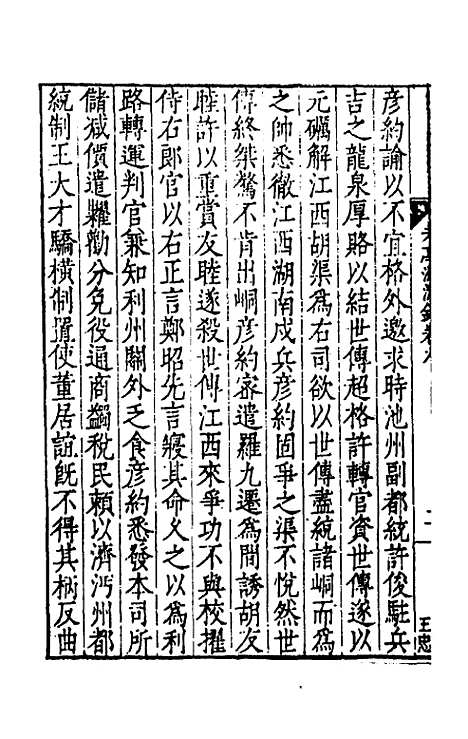 彦約諭以不宜格外邀求時池州副都統許俊駐兵
吉之龍泉厚賂以結世傳超格許轉官資世傳遂以
元礪解江西胡渠為右司欲以世傳盡統諸峒而為
之帥悉徹江西湖南戍兵彦約固爭之渠不悅然世
傳終桀驁不肯出峒彦約密遣羅九遷為間誘胡友
睦許以重賞友睦遂殺世傳江西來爭功不與校擢
侍右郎官以右正言鄭昭先言寢其命久之以為利
路轉運判官兼知利州關外乏食彦約悉發本司所
儲減價遣糶勸分免役通商蠲稅民賴以濟沔州都
統制王大才驕橫制置使董居誼旣不得其柄反曲